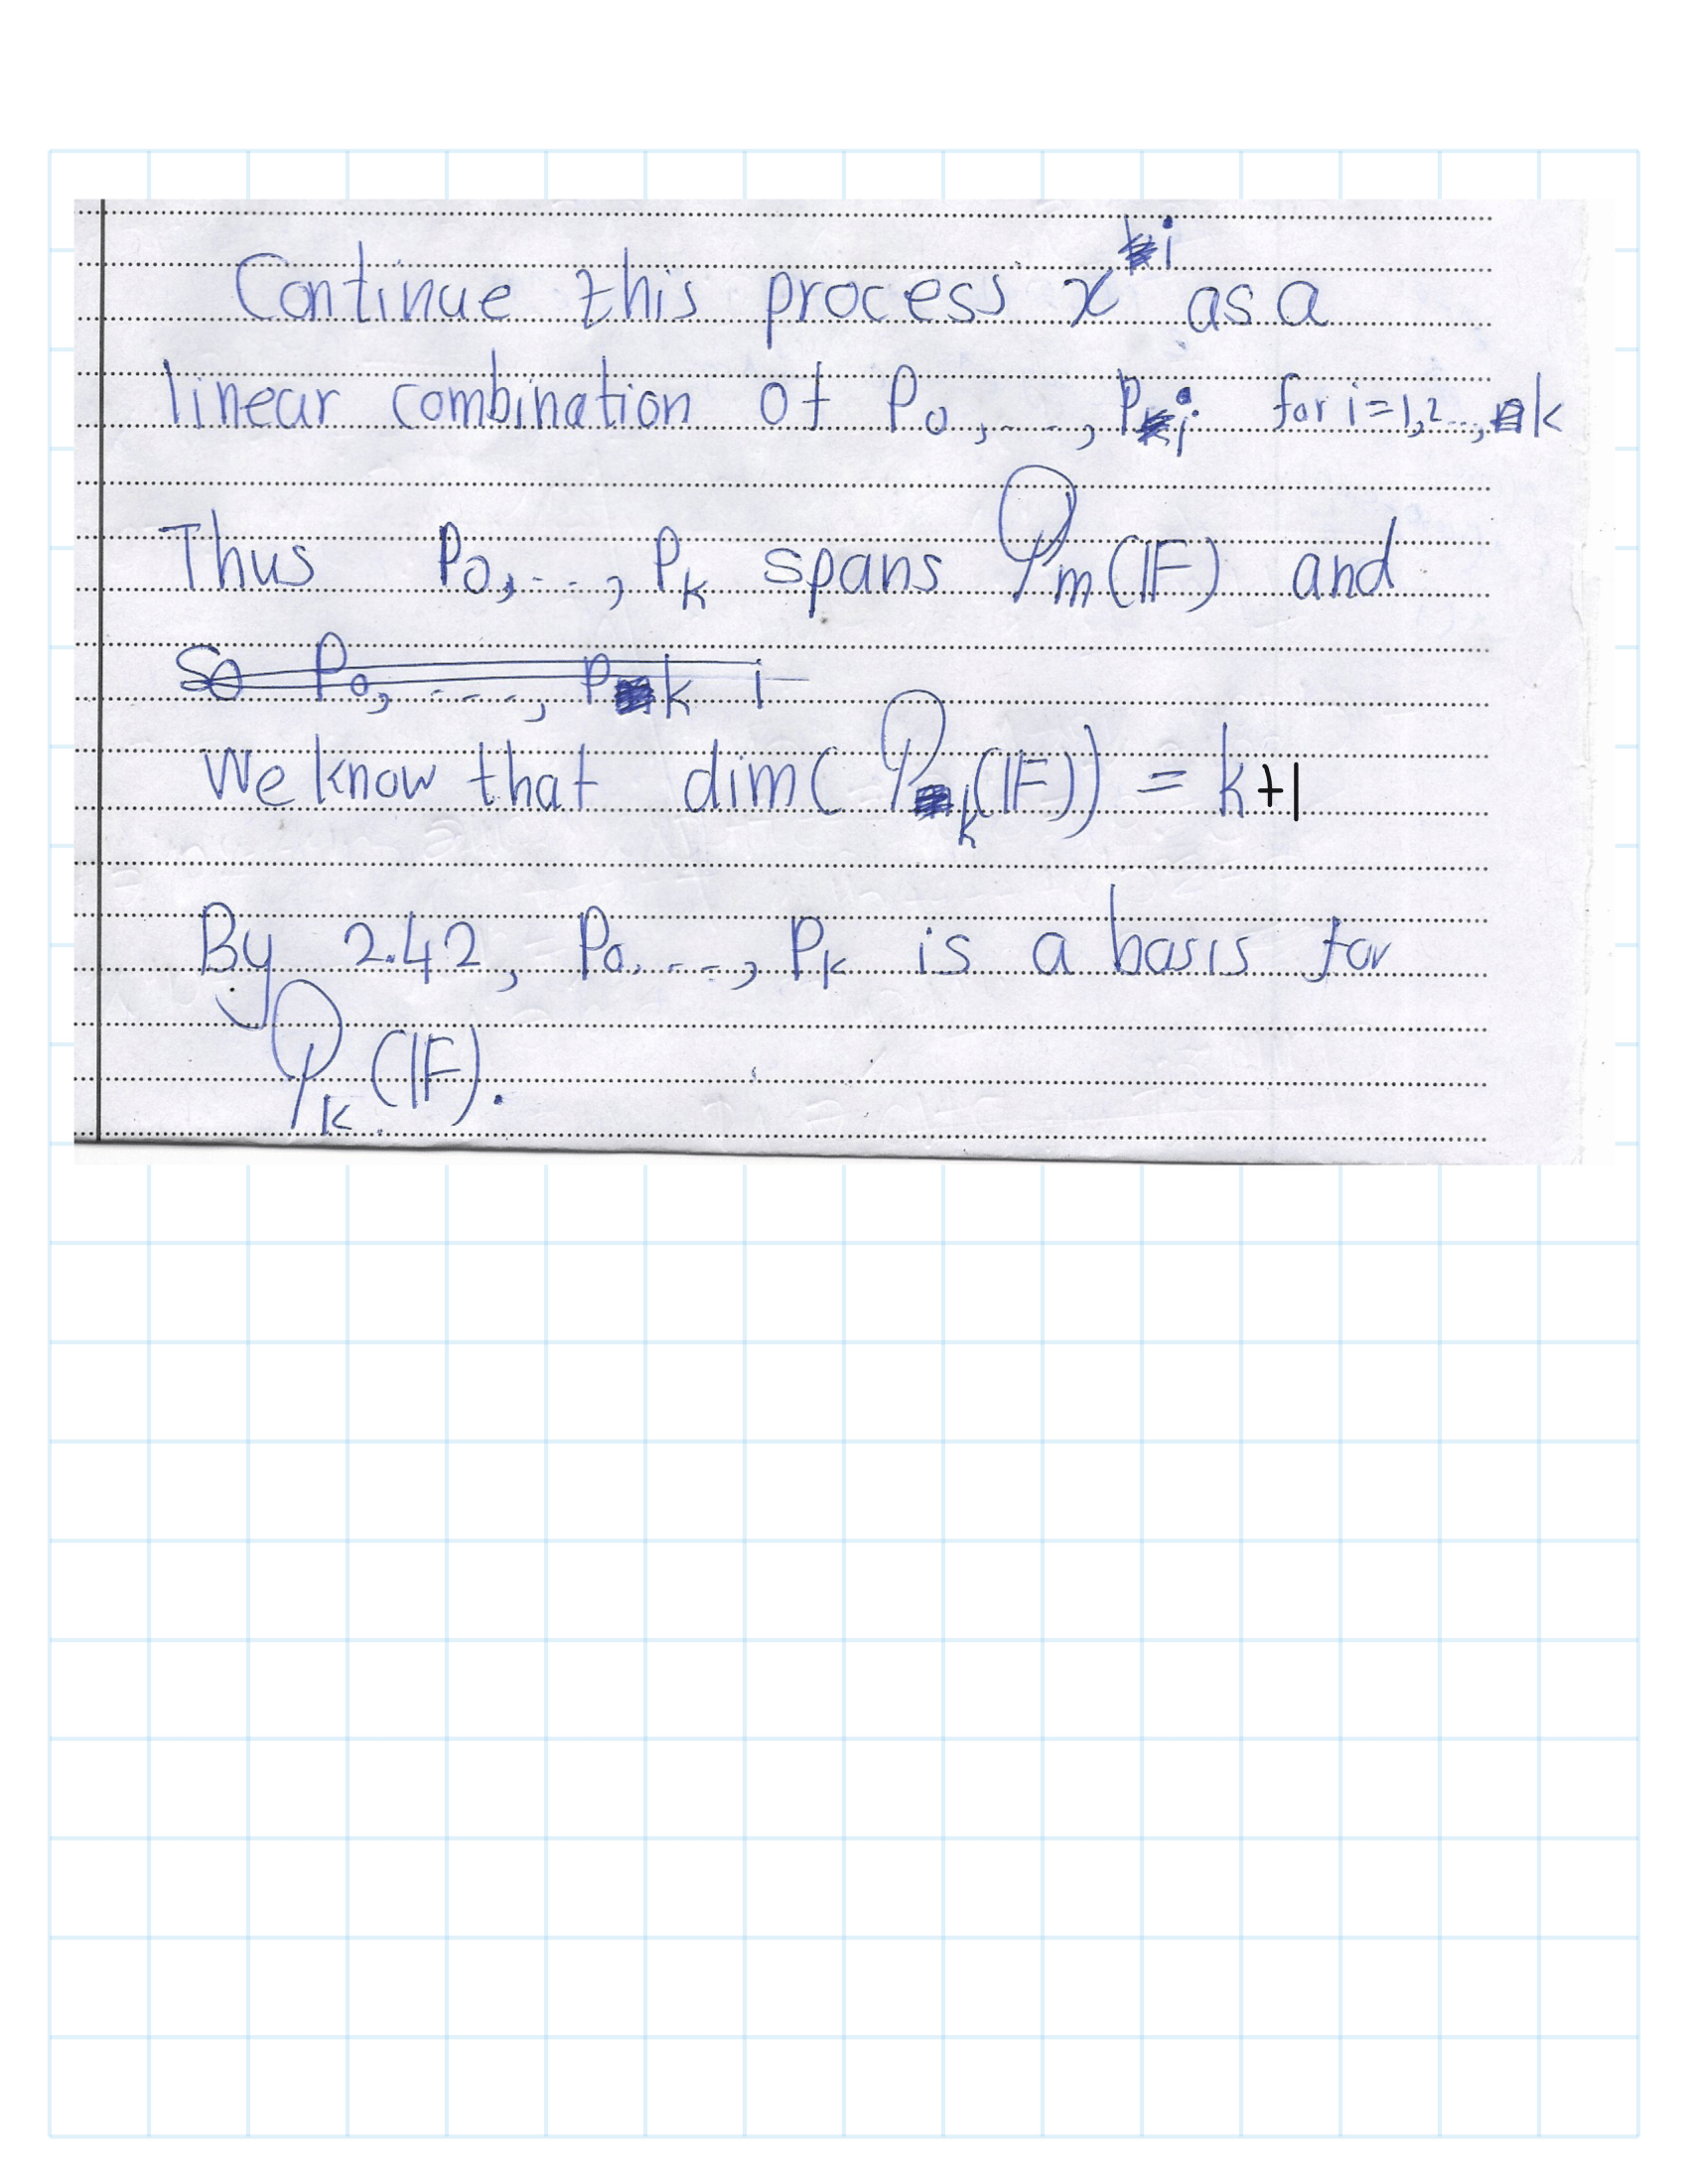 Continue this process x^i as a
linear combination of P₀, ..., Pᵢ for i=1,2...,k
Thus P₀, ..., Pₖ spans 𝒫ₘ(𝔽) and
So P₀, ..., Pₖ i
We know that dim(𝒫ₖ(𝔽)) = k+1
By 2.42, P₀, ..., Pₖ is a basis for
𝒫ₖ(𝔽).